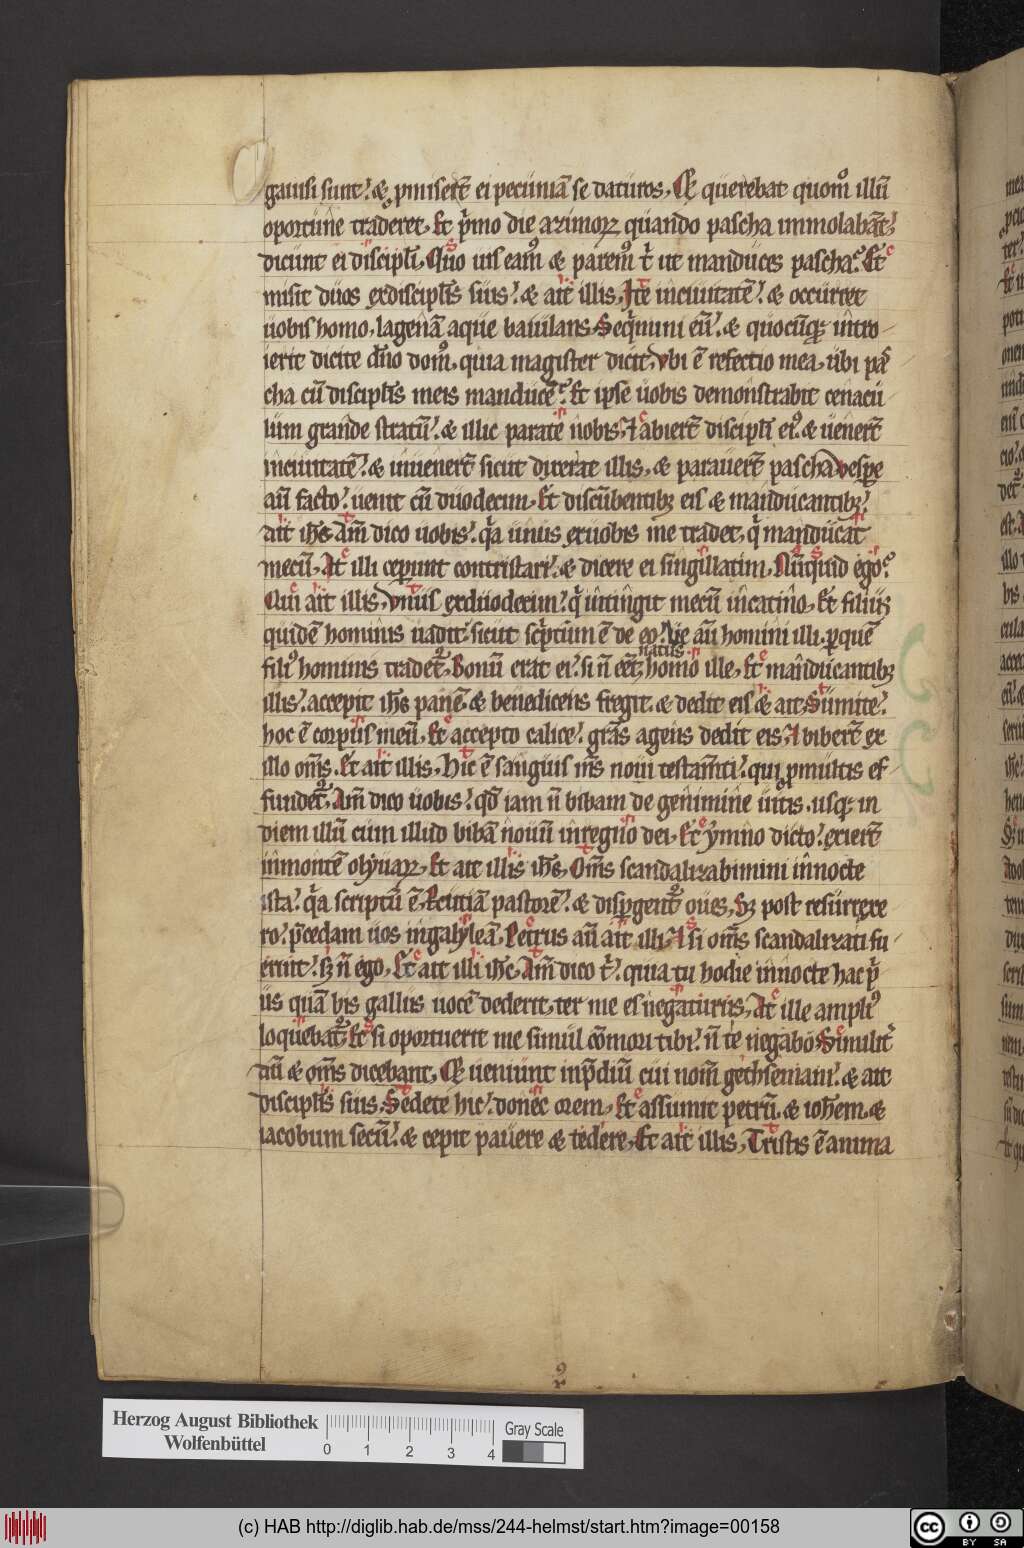 gauisi sunt. & ꝓmiserт̄ ei pecuniā se daturos. Et querebat quom̊ illū
oportune traderet. Et pͥmo die azimoꝝ quando pascha immolabāt.
dicunt ei discipl̄i. Quo uis eam᷒ & parem᷒ tͥ ut manduces pascha. Et
misit duos exdiscipl̄is suis. & ait illis. Ite inciuitatē. & occurret
uobis homo. lagenā aque baiulans. Seqͥmini eū. & quocūqꝫ intro-
ierit dicite dn̄o dom᷒. quia magister dicit. vbi ē refectio mea. ubi pas
cha cū discipl̄is meis manducē. Et ipse uobis demonstrabit cenacu
lum grande stratū. & illic parate nobis. Et abierт̄ discipl̄i ei᷒. & uenerт̄
inciuitatē. & inuenerт̄ sicut dixerat illis. & parauerт̄ pascha. vespe
aū facto. uenit cū duodecim. Et discūbentibꝫ eis & manducantibꝫ.
ait ih̄s. Am̄ dico uobis. qͣa unus exuobis me tradet. qͥ manducat
mecū. At illi ceperunt contristari. & dicere ei singillatim. Nūquid ego.
Qui ait illis. vnus exduodecim. qͥ intingit mecū incatino. Et filius
quidē hominis uadit. sicut scͥptum ē de eo. Ve aū homini illi. ꝑquē
fili᷒ hominis tradet᷑. Bonū erat ei. si n̄ eēt natus homo ille. Et manducantibꝫ
illis. accepit ih̄s panē. & benedicens fregit. & dedit eis & ait. Sumite.
hoc ē corpus meū. Et accepto calice. gr̄as agens dedit eis. & biberт̄ ex
illo om̄s. Et ait illis. Hic ē sanguis m̄s noui testam̄ti. qui ꝓmultis ef-
fundet᷑. Am̄ dico uobis. qd̄ iam n̄ bibam de genimine uitis. usqꝫ in
diem illū cum illud bibā nouū inregno dei. Et ymno dicto. exierт̄
inmontē olyuaꝝ. Et ait illis ih̄s. Om̄s scandalizabimini innocte
ista. qͣa scriptū ē. Percutiā pastorē. & dispergent᷑ oues. Sꝫ post resurrexe
ro. p̄cedam uos ingalyleā. Petrus aū ait illi. Et si om̄s scandalizati fu-
erint. sꝫ n̄ ego. Et ait illi ih̄c. Am̄ dico tͥ. quia tu hodie innocte hac pͥ
us quā bis gallus uocē dederit. ter me es negaturus. At ille ampli᷒
loquebat᷑. Et si oportuerit me simul cōmori tibi. n̄ te negabo. Similitͬ
aū & om̄s dicebant. Et ueniunt inp̄diū cui nom̄ gethsemani. & ait
discipl̄is suis. Sedete hic. donec orem. Et assumit petrū. & ioh̄em. &
iacobum secū. & cepit pauere & tedere. Et ait illis. Tristis ē anima
Herzog August Bibliothek
Wolfenbüttel
0 1 2 3 4
Gray Scale
(c) HAB http://diglib.hab.de/mss/244-helmst/start.htm?image=00158
cc BY SA